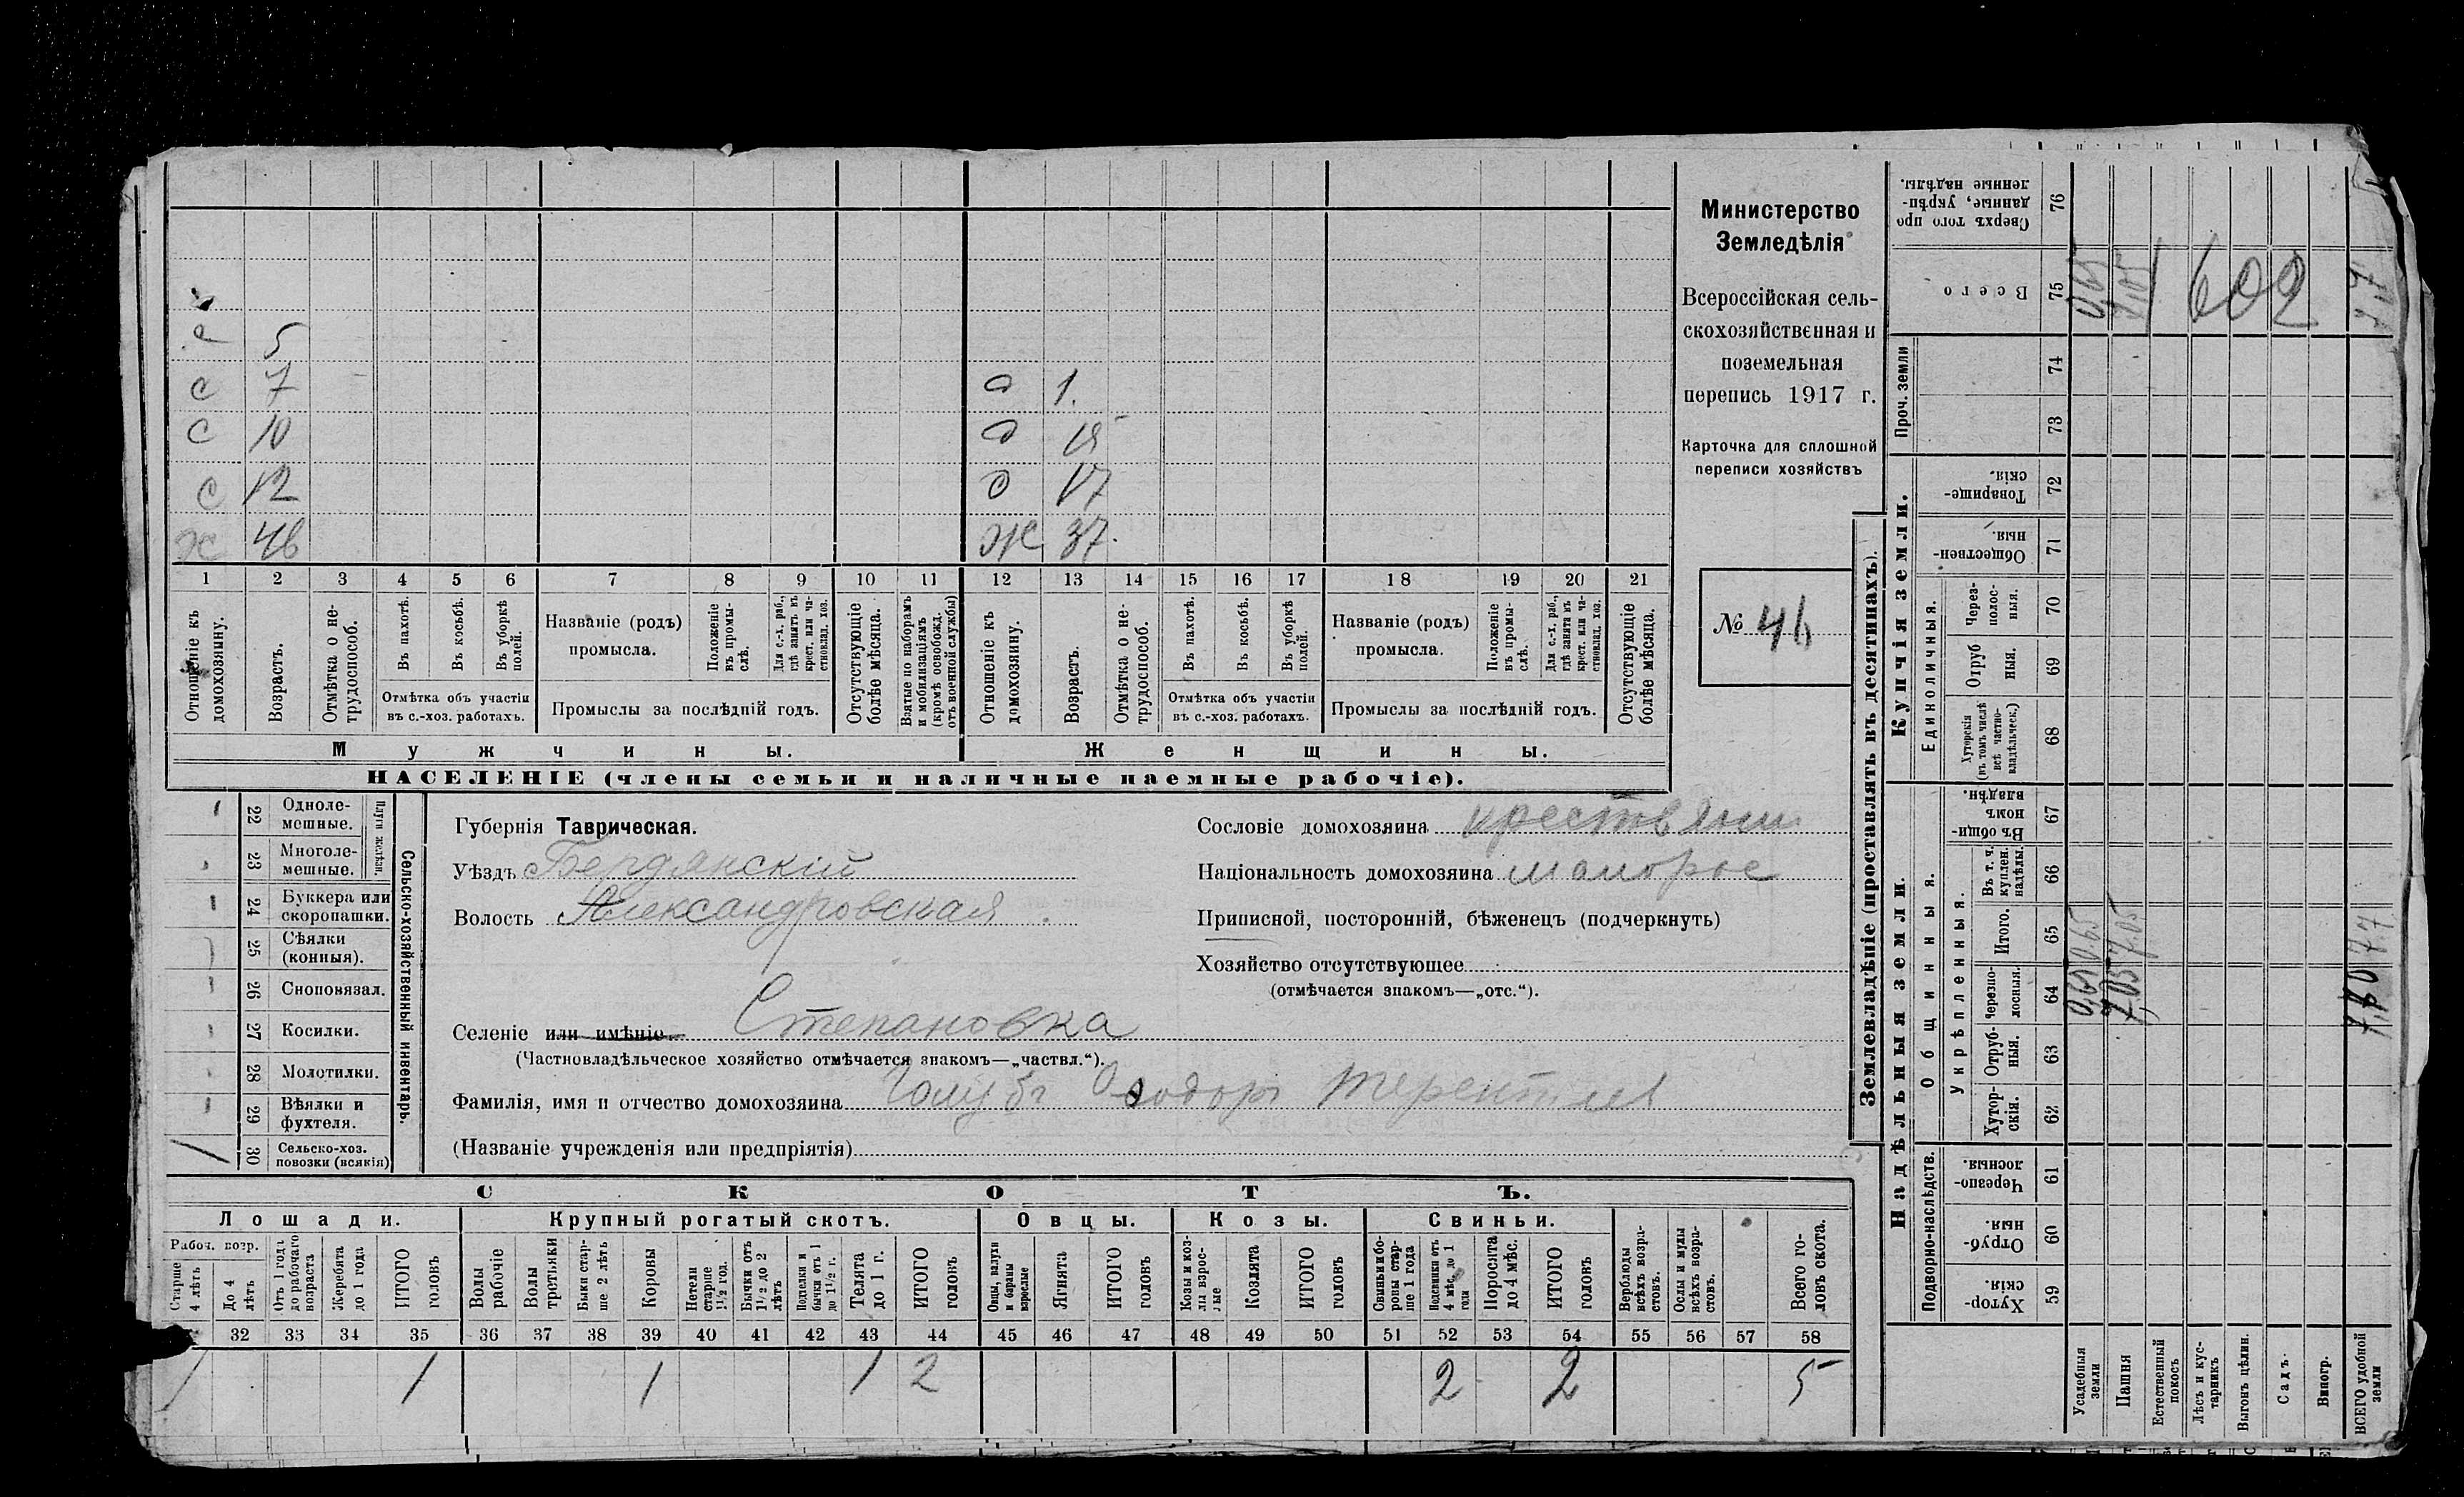 с 5
с 7
с 10
с 12
ж 46
д 1.
д 15
д 17
ж 37.
1 2 3 4 5 6 7 8 9 10 11 12 13 14 15 16 17 18 19 20 21
Отношеніе къ домохозяину.
Возрастъ.
Отмѣтка о нетрудоспособ.
Въ пахотѣ.
Въ косьбѣ.
Въ уборкѣ полей.
Отмѣтка объ участіи
въ с.-хоз. работахъ.
Названіе (родъ)
промысла.
Положеніе въ промыслѣ.
Для с.-х. раб., гдѣ занятъ въ крест. или частновлад. хоз.
Промыслы за послѣдній годъ.
Отсутствующіе болѣе мѣсяца.
Взятые по наборамъ и мобилизаціямъ (кромѣ освобожд. отъ военной службы)
Отношеніе къ домохозяину.
Возрастъ.
Отмѣтка о нетрудоспособ.
Въ пахотѣ.
Въ косьбѣ.
Въ уборкѣ полей.
Отмѣтка объ участіи
въ с.-хоз. работахъ.
Названіе (родъ)
промысла.
Положеніе въ промыслѣ.
Для с.-х. раб., гдѣ занята въ крест. или частновлад. хоз.
Промыслы за послѣдній годъ.
Отсутствующіе болѣе мѣсяца.
Мужчины.
Женщины.
НАСЕЛЕНІЕ (члены семьи и наличные наемные рабочіе).
Министерство
Земледѣлія
Всероссійская сель-
скохозяйственная и
поземельная
перепись 1917 г.
Карточка для сплошной
переписи хозяйствъ
№ 46
22 Одноле-
мешные.
23 Многоле-
мешные.
Плуги желѣзн.
24 Буккера или
скоропашки.
25 Сѣялки
(конныя).
26 Сноповязал.
27 Косилки.
28 Молотилки.
29 Вѣялки и
фухтеля.
30 Сельско-хоз.
повозки (всякія)
Сельско-хозяйственный инвентарь.
Губернія Таврическая.
Уѣздъ Бердянскій
Волость Александровская
Селеніе или имѣніе Степановка
(Частновладѣльческое хозяйство отмѣчается знакомъ—„частвл.“).
Фамилія, имя и отчество домохозяина Голубъ Ѳеодоръ Терентіев
(Названіе учрежденія или предпріятія)
Сословіе домохозяина крестьянин
Національность домохозяина малорос
Приписной, посторонній, бѣженецъ (подчеркнуть)
Хозяйство отсутствующее
(отмѣчается знакомъ—„отс.“).
СКОТЪ.
Лошади.
Крупный рогатый скотъ.
Овцы.
Козы.
Свиньи.
Рабоч. возр.
Старше 4 лѣтъ
До 4 лѣтъ
Отъ 1 года до рабочаго возраста
Жеребята до 1 года
ИТОГО головъ
Волы рабочіе
Волы третьяки
Быки старше 2 лѣтъ
Коровы
Нетели старше 1½ год.
Бычки отъ 1½ до 2 лѣтъ
Подтелки и бычки отъ 1 до 1½ г.
Телята до 1 г.
ИТОГО головъ
Овцы, валухи и бараны взрослые
Ягнята
ИТОГО головъ
Козы и козлы взрослые
Козлята
ИТОГО головъ
Свиньи и боровы старше 1 года
Подсвинки отъ 4 мѣс. до 1 года
Поросята до 4 мѣс.
ИТОГО головъ
Верблюды всѣхъ возрастовъ.
Ослы и мулы всѣхъ возрастовъ.
Всего головъ скота.
32 33 34 35 36 37 38 39 40 41 42 43 44 45 46 47 48 49 50 51 52 53 54 55 56 57 58
1 1 1 1 2 2 2 5
Землевладѣніе (проставлять въ десятинахъ).
Надѣльныя земли.
Купчія земли.
Проч. земли
Подворно-наслѣдств.
Общинныя.
Укрѣпленныя.
Единоличныя.
Хуторскія. 59
Отрубныя. 60
Черезполосныя. 61
Хуторскія. 62
Отрубныя. 63
Черезполосныя. 64
Итого. 65
Въ т. ч. куплен. надѣлы. 66
Въ общинномъ владѣн. 67
Хуторскія (въ томъ числѣ всѣ частновладѣльческ.) 68
Отрубныя. 69
Черезполосныя. 70
Общественныя. 71
Товарищескія. 72
73
74
Всего 75
Сверхъ того проданные, укрѣпленные надѣлы. 76
Усадебныя земли
0,65 0,65 0,65
Пашня
7,05 7,05 7,05
Естественный покосъ
Лѣсъ и кустарникъ
Выгонъ цѣлин.
Садъ.
Виногр.
ВСЕГО удобной земли
7,70 7,7 7,7
1602